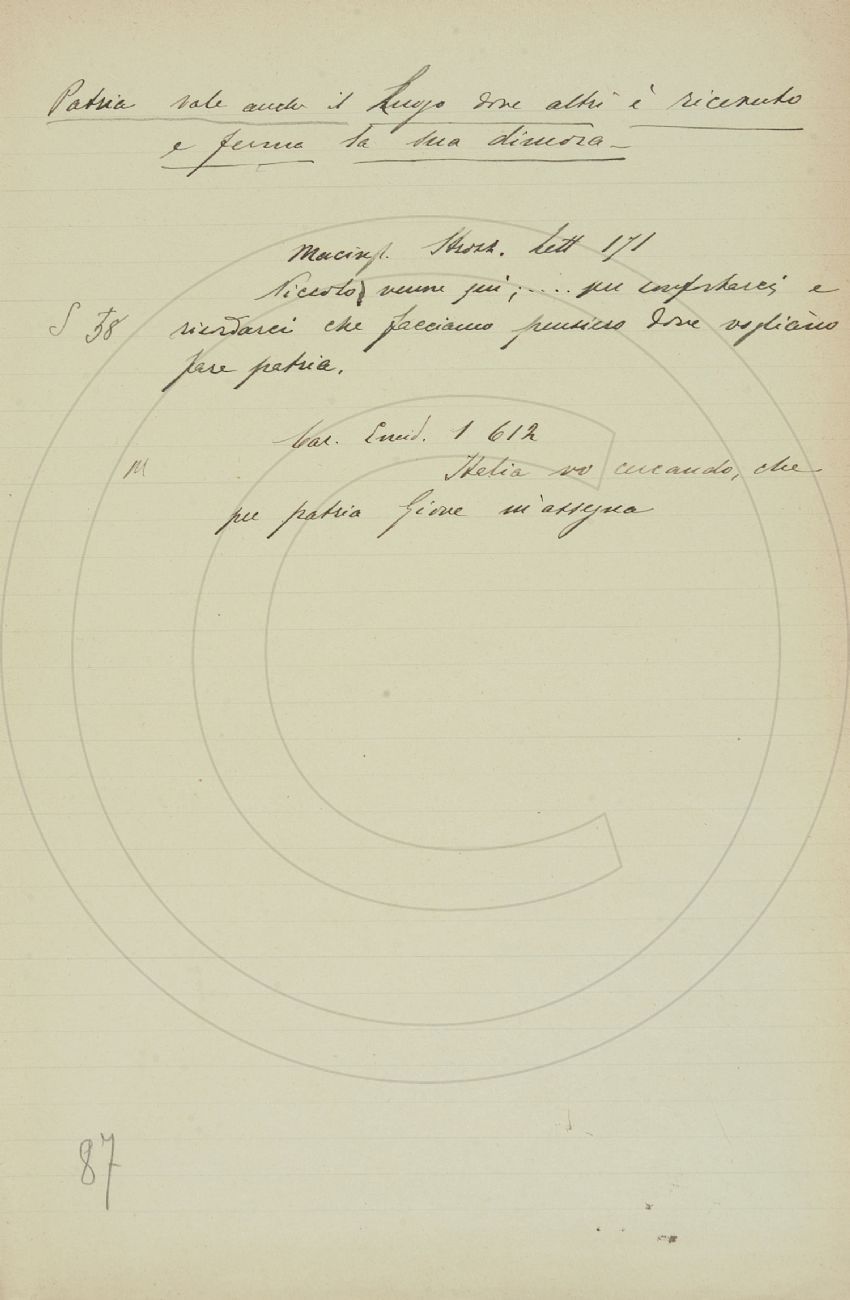 Patria vale anche il Luogo dove altri è ricevuto
e ferma la sua dimora_
Macingh. Strozz. Lett 171
Niccolò venne qui; .... per confortarci e
S 58 ricordarci che facciamo pensiero dove vogliàno
fare patria.
Car. Eneid. 1 612
M Italia vo cercando, che
per patria Giove m'assegna
87